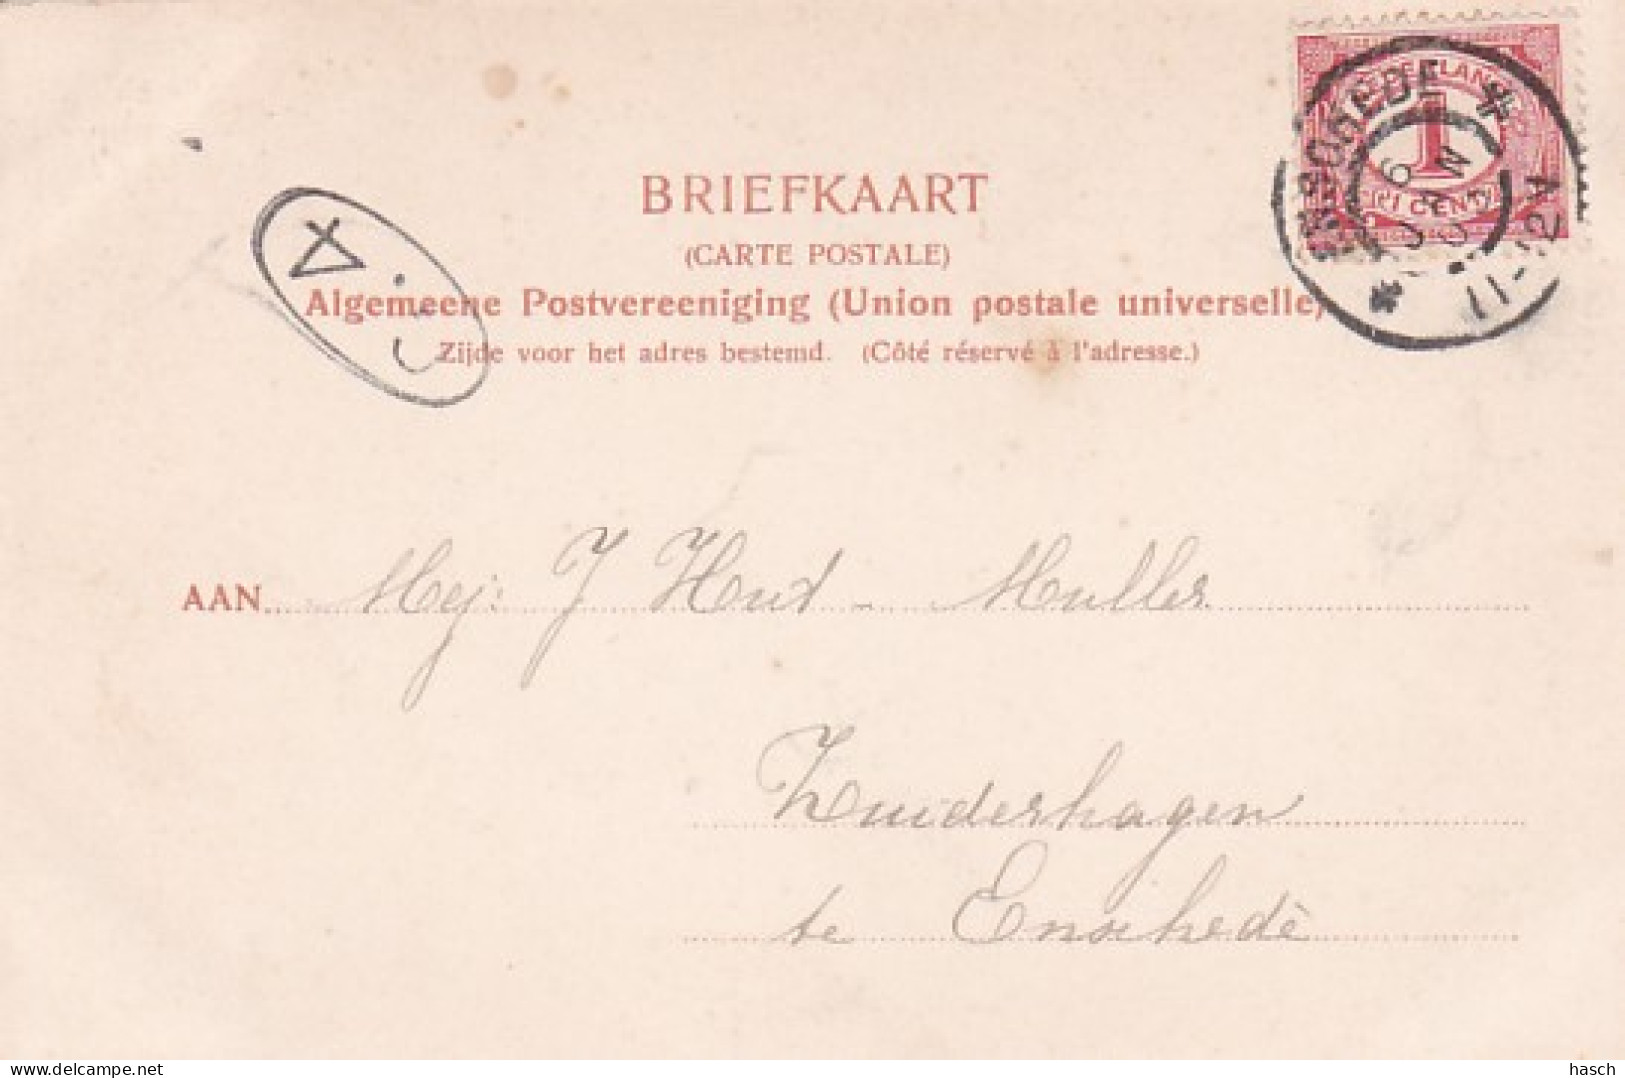 BRIEFKAART
(CARTE POSTALE)
Algemeene Postvereeniging (Union postale universelle)
Zijde voor het adres bestemd. (Côté réservé à l'adresse.)
AAN Mej: J Hout - Muller
Zuiderhagen
te Enschedè
NEDERLAND
1
CENT
4
hasch
delcampe.net